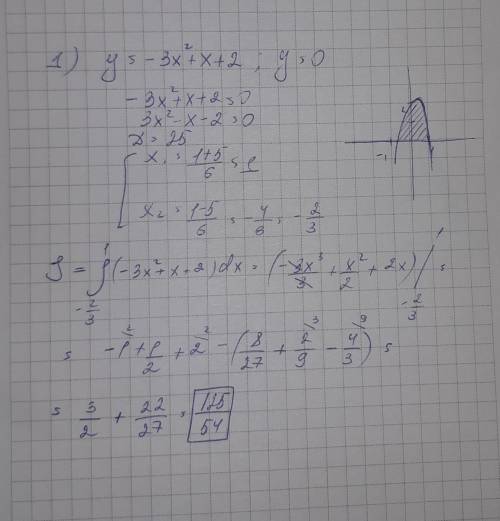 1) y = -3x² + x + 2 ; y = 0
-3x² + x + 2 = 0
3x² - x - 2 = 0
D = 25
x₁ = (1+5)/6 = 1
x₂ = (1-5)/6 = -4/6 = -2/3
-1
S = ∫_{-2/3}^{1} (-3x² + x + 2) dx = (-3x³/3 + x²/2 + 2x) /_{-2/3}^{1} =
= -1^{\2} + 1/2 + 2^{\2} - (8/27 + 2/9^{\3} - 4/3^{\9}) =
= 3/2 + 22/27 = 125/54